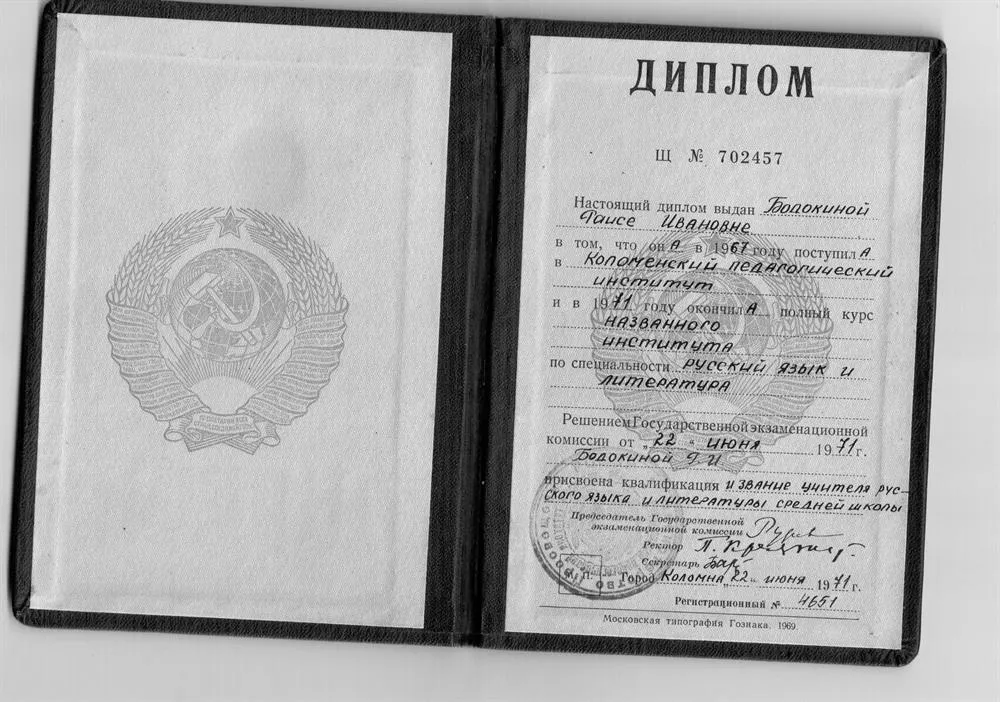 ДИПЛОМ
Щ № 702457
Настоящий диплом выдан Бодокиной
Раисе Ивановне
в том, что он А в 1967 году поступил А
в Коломенский педагогический
институт
и в 1971 году окончил А полный курс
названного
института
по специальности русский язык и
литература
Решением Государственной экзаменационной
комиссии от „22“ июня 1971 г.
Бодокиной Р И
присвоена квалификация и звание учителя рус-
ского языка и литературы средней школы
Председатель Государственной
экзаменационной комиссии
Ректор
Секретарь
М. П. Город Коломна „22“ июня 1971 г.
Регистрационный № 4651
Московская типография Гознака. 1969